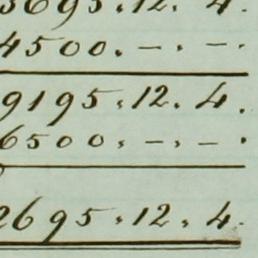 3695.12.4.
4500.–.–.
9195.12.4.
6500.–.–.
2695.12.4.